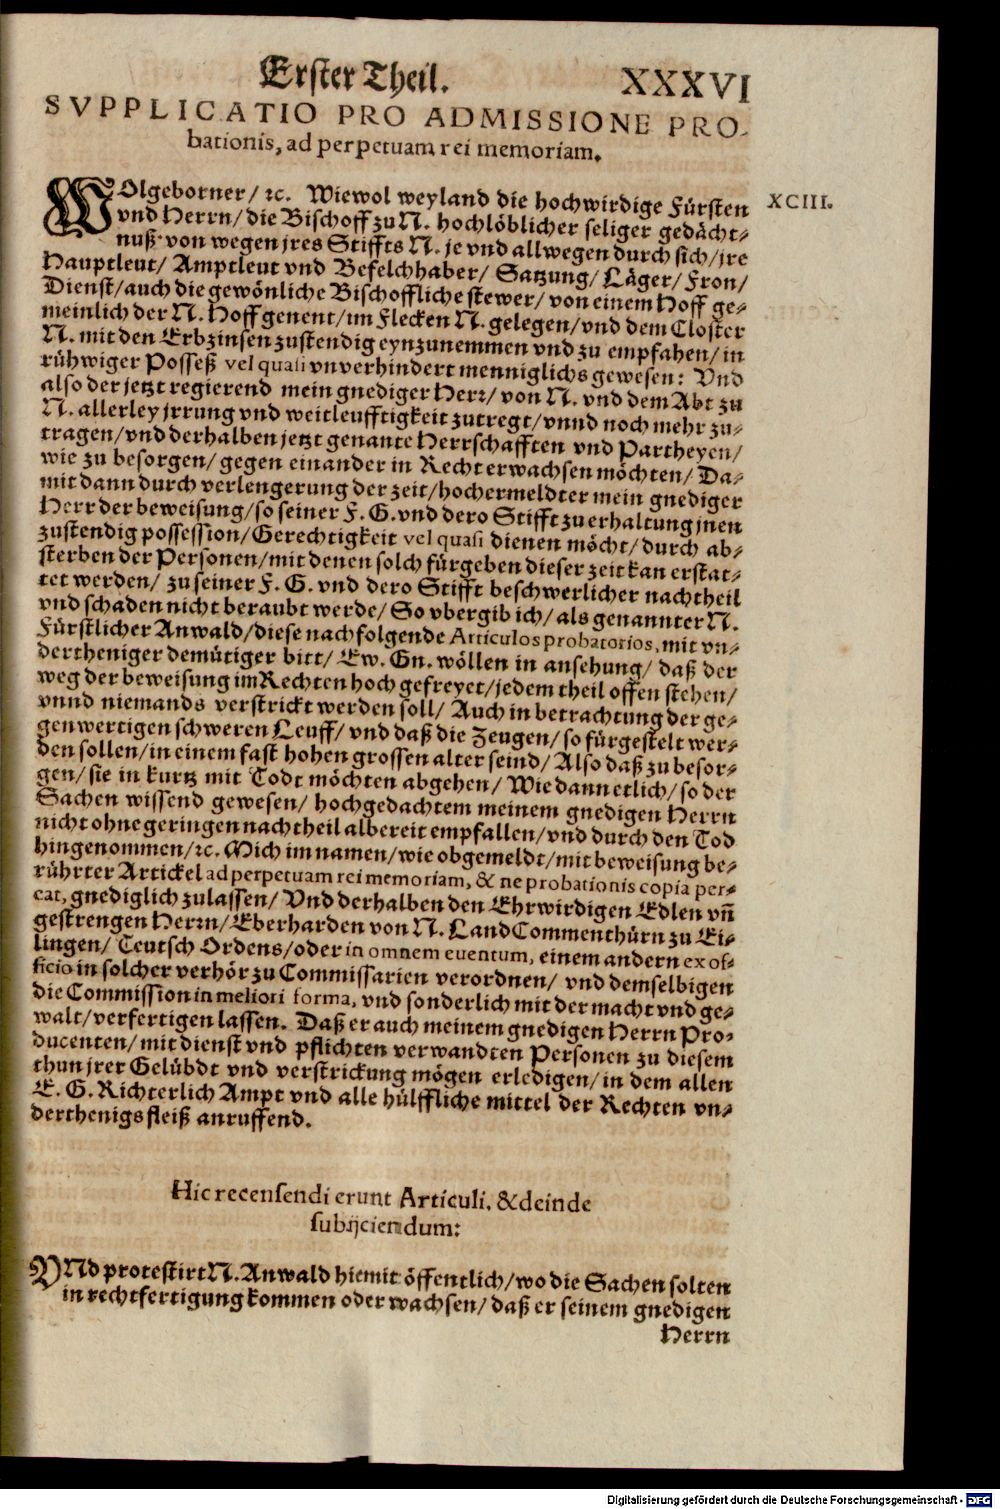 Erster Theil. XXXVI
SVPPLICATIO PRO ADMISSIONE PRO-
bationis, ad perpetuam rei memoriam.
XCIII.
WOlgeborner/ ꝛc. Wiewol weyland die hochwirdige Fürsten
vnd Herrn/ die Bischoff zu N. hochlöblicher seliger gedächt-
nuß von wegen jres Stiffts N. je vnd allwegen durch sich/ jre
Hauptleut/ Amptleut vnd Befelchhaber/ Satzung/ Läger/ Fron/
Dienst/ auch die gewönliche Bischoffliche stewer/ von einem Hoff ge-
meinlich der N. Hoff genent/ im Flecken N. gelegen/ vnd dem Closter
N. mit den Erbzinsen zustendig eynzunemmen vnd zu empfahen/ in
rühwiger Posseß vel quasi vnverhindert menniglichs gewesen: Vnd
also der jetzt regierend mein gnediger Herr/ von N. vnd dem Abt zu
N. allerley jrrung vnd weitleufftigkeit zutregt/ vnnd noch mehr zu-
tragen/ vnd derhalben jetzt genante Herrschafften vnd Partheyen/
wie zu besorgen/ gegen einander in Recht erwachsen möchten/ Da-
mit dann durch verlengerung der zeit/ hochermeldter mein gnediger
Herr der beweisung/ so seiner F. G. vnd dero Stifft zu erhaltung jnen
zustendig possession/ Gerechtigkeit vel quasi dienen möcht/ durch ab-
sterben der Personen/ mit denen solch fürgeben dieser zeit kan erstat-
tet werden/ zu seiner F. G. vnd dero Stifft beschwerlicher nachtheil
vnd schaden nicht beraubt werde/ So vbergib ich/ als genannter N.
Fürstlicher Anwald/ diese nachfolgende Articulos probatorios, mit vn-
dertheniger demütiger bitt/ Ew. Gn. wöllen in ansehung/ daß der
weg der beweisung im Rechten hoch gefreyet/ jedem theil offen stehen/
vnnd niemands verstrickt werden soll/ Auch in betrachtung der ge-
genwertigen schweren Leuff/ vnd daß die Zeugen/ so fürgestelt wer-
den sollen/ in einem fast hohen grossen alter seind/ Also daß zu besor-
gen/ sie in kurtz mit Todt möchten abgehen/ Wie dann etlich/ so der
Sachen wissend gewesen/ hochgedachtem meinem gnedigen Herrn
nicht ohne geringen nachtheil albereit empfallen/ vnd durch den Tod
hingenommen/ ꝛc. Mich im namen/ wie obgemeldt/ mit beweisung be-
rührter Artickel ad perpetuam rei memoriam, & ne probationis copia per-
eat, gnediglich zulassen/ Vnd derhalben den Ehrwirdigen Edlen vñ
gestrengen Herrn/ Eberharden von N. LandCommenthürn zu Ei-
lingen/ Teutsch Ordens/ oder in omnem euentum, einem andern ex of-
ficio in solcher verhör zu Commissarien verordnen/ vnd demselbigen
die Commission in meliori forma, vnd sonderlich mit der macht vnd ge-
walt/ verfertigen lassen. Daß er auch meinem gnedigen Herrn Pro-
ducenten/ mit dienst vnd pflichten verwandten Personen zu diesem
thun jrer Gelübdt vnd verstrickung mögen erledigen/ in dem allen
E. G. Richterlich Ampt vnd alle hülffliche mittel der Rechten vn-
derthenigs fleiß anruffend.
Hic recensendi erunt Articuli, & deinde
subijciendum:
VNd protestirt N. Anwald hiemit öffentlich/ wo die Sachen solten
in rechtfertigung kommen oder wachsen/ daß er seinem gnedigen
Herrn
Digitalisierung gefördert durch die Deutsche Forschungsgemeinschaft - DFG